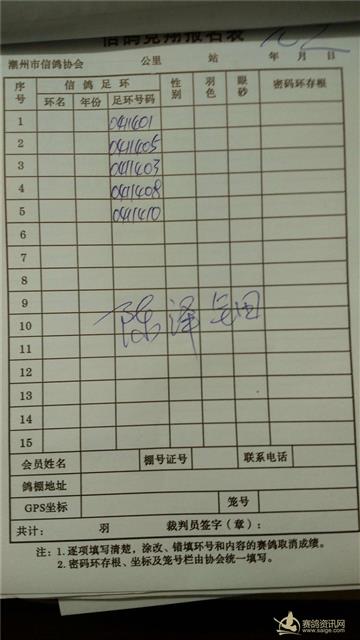 信鸽竞翔报名表
潮州市信鸽协会 公里 站 年 月 日
序号 信鸽足环 性别 羽色 眼砂 密码环存根
环名 年份 足环号码
1 0411401
2 0411405
3 0411403
4 0411408
5 0411410
6
7
8
9
10
11
12
13
14
15
陈泽
会员姓名 棚号证号 联系电话
鸽棚地址
GPS坐标 笼号
共计: 羽 裁判员签字(章):
注:1.逐项填写清楚,涂改、错填环号和内容的赛鸽取消成绩。
2.密码环存根、坐标及笼号栏由协会统一填写。
赛鸽资讯网
www.saige.com